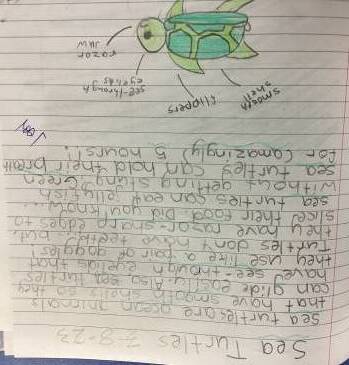 Sea Turtles 7-8-23
Sea turtles are ocean animals
that have smooth shells so they
can glide easily. Also, sea turtles
have see-through eyelids that
they use like a pair of goggles!
Turtles don't have teeth, but,
they have razor-sharp edges to
slice their food. Did you know...
sea turtles can eat jellyfish
without getting stung? Green
sea turtles can hold their breath
for (amazingly) 5 hours!
smooth
shell
flippers
see-through
eyelids
razor
jaw